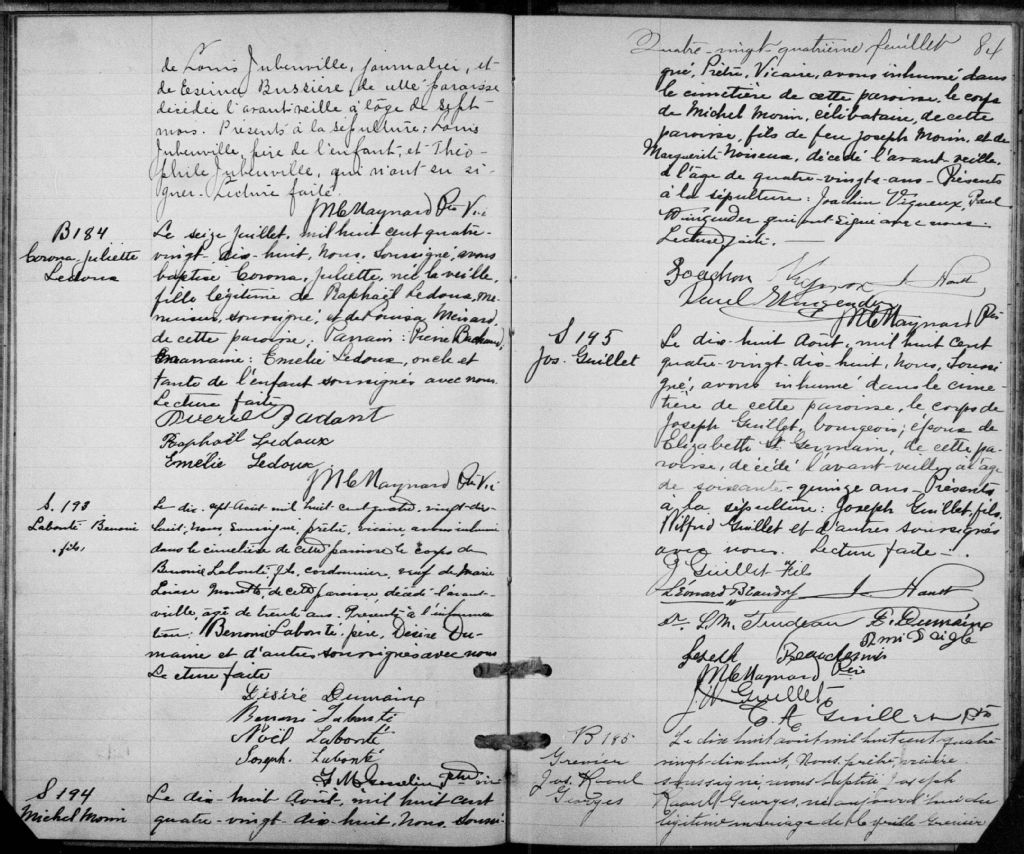 de Louis Jubenville, journalier, et
de Exerina Bussière de cette paroisse
décédée l'avant veille à l'âge de sept
mois. Présents à la sépulture: Louis
Jubenville, père de l'enfant, et Théo-
phile Jubenville, qui n'ont su si-
gner. Lecture faite.
JMCMaynard Ptre Vic
B 184
Corona Juliette
Ledoux
Le seize Juillet, mil huit cent quatre-
vingt-dix-huit, Nous, soussigné, avons
baptisé Corona, Juliette, née la veille,
fille légitime de Raphaël Ledoux, me-
nuisier, soussigné, et de Louisa Ménard,
de cette paroisse; Parrain: Pierre
marraine: Emélie Ledoux, oncle et
tante de l'enfant soussignés avec nous.
Lecture faite
Raphaël Ledoux
Emélie Ledoux
JMCMaynard Ptre Vic
S. 193
Labonté Benoni
fils,
Le dix-sept Août mil huit cent quatre vingt-dix-
huit, Nous soussigné, prêtre, vicaire, avons inhumé
dans le cimetière de cette paroisse le corps de
Benoni Labonté, fils, cordonnier, veuf de Marie
Louise de cette paroisse décédé l'avant-
veille, âgé de trente ans. Présents à l'inhuma-
tion: Benoni Labonté, père, Désiré Du-
maine et d'autres soussignés avec nous
Lecture faite
Désiré Dumaine
Benoni Labonté
Noël Labonté
Joseph Labonté
S 194
Michel Morin
Le dix-huit Août, mil huit cent
quatre-vingt-dix-huit, Nous, soussi-
Quatre-vingt-quatrième feuillet 84
gné, Prêtre, Vicaire, avons inhumé dans
le cimetière de cette paroisse, le corps
de Michel Morin, célibataire, de cette
paroisse, fils de feu Joseph Morin, et de
Marguerite Noiseux, décédé l'avant veille,
à l'âge de quatre-vingts-ans. Présents
à la sépulture: Joachim Vigneux, Paul
Wingender qui ont signé avec nous.
Lecture faite. —
Paul Wingender
JMCMaynard Ptre
S 195
Jos. Guillet
Le dix-huit Août, mil huit cent
quatre-vingt-dix-huit, Nous, soussi-
gné, avons inhumé dans le cime-
tière de cette paroisse, le corps de
Joseph Guillet, bourgeois, époux de
Elizabeth St Germain, de cette pa-
roisse, décédé l'avant-veille, à l'âge
de soixante-quinze ans. Présents
à la sépulture: Joseph Guillet, fils,
Wilfrid Guillet et d'autres soussignés
avec nous. Lecture faite —
J Guillet Fils
Léonard Beaudry
Dr. L.M. Trudeau
E. Dumaine
Omi Daigle
Joseph Beauchemin
JMCMaynard Ptre
J W Guillet
B 185
Grenier
Jos. Raoul
Georges
Le dix huit août mil huit cent quatre
vingt-dix huit, Nous, prêtre, vicaire
soussigné, avons baptisé Joseph
Raoul, Georges, né aujourd'hui du
légitime mariage de Grenier